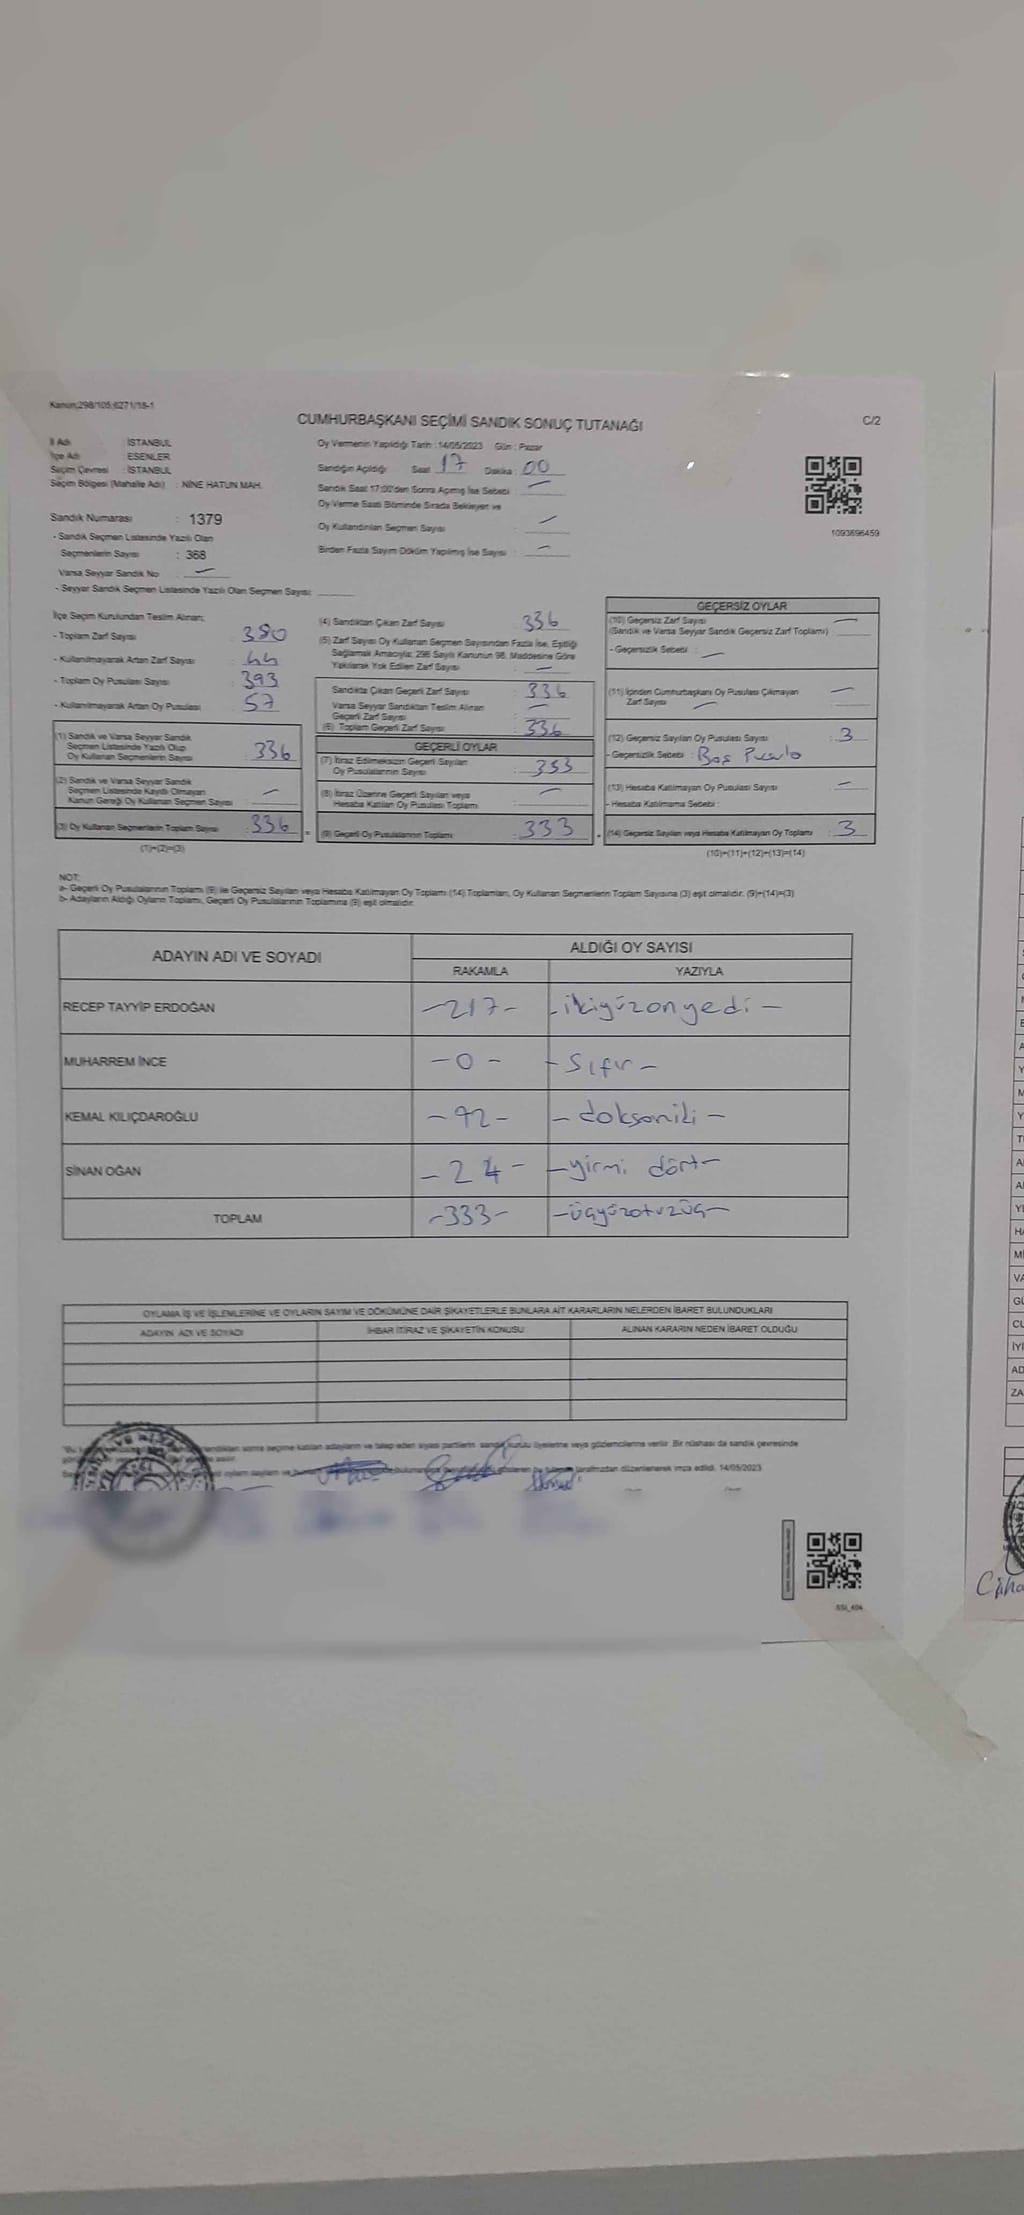 Kanun;298/105;6271/18-1
CUMHURBAŞKANI SEÇİMİ SANDIK SONUÇ TUTANAĞI
C/2
İl Adı : İSTANBUL
İlçe Adı : ESENLER
Seçim Çevresi : İSTANBUL
Seçim Bölgesi (Mahalle Adı) : NİNE HATUN MAH.
Sandık Numarası : 1379
- Sandık Seçmen Listesinde Yazılı Olan
Seçmenlerin Sayısı : 368
Varsa Seyyar Sandık No : —
- Seyyar Sandık Seçmen Listesinde Yazılı Olan Seçmen Sayısı:
Oy Vermenin Yapıldığı Tarih : 14/05/2023 Gün : Pazar
Sandığın Açıldığı Saat : 17 Dakika : 00
Sandık Saat 17:00'den Sonra Açılmış İse Sebebi : —
Oy Verme Saati Bitiminde Sırada Bekleyen ve
Oy Kullandırılan Seçmen Sayısı : —
Birden Fazla Sayım Döküm Yapılmış İse Sayısı : —
1093696459
İlçe Seçim Kurulundan Teslim Alınan;
- Toplam Zarf Sayısı : 380
- Kullanılmayarak Artan Zarf Sayısı : 44
- Toplam Oy Pusulası Sayısı : 393
- Kullanılmayarak Artan Oy Pusulası : 57
(1) Sandık ve Varsa Seyyar Sandık
Seçmen Listesinde Yazılı Olup
Oy Kullanan Seçmenlerin Sayısı : 336
(2) Sandık ve Varsa Seyyar Sandık
Seçmen Listesinde Kayıtlı Olmayan
Kanun Gereği Oy Kullanan Seçmen Sayısı : —
(3) Oy Kullanan Seçmenlerin Toplam Sayısı : 336
(1)+(2)=(3)
(4) Sandıktan Çıkan Zarf Sayısı : 336
(5) Zarf Sayısı Oy Kullanan Seçmen Sayısından Fazla İse, Eşitliği
Sağlamak Amacıyla; 298 Sayılı Kanunun 98. Maddesine Göre
Yakılarak Yok Edilen Zarf Sayısı : —
Sandıkta Çıkan Geçerli Zarf Sayısı : 336
Varsa Seyyar Sandıktan Teslim Alınan
Geçerli Zarf Sayısı : —
(6) Toplam Geçerli Zarf Sayısı : 336
GEÇERLİ OYLAR
(7) İtiraz Edilmeksizin Geçerli Sayılan
Oy Pusulalarının Sayısı : 333
(8) İtiraz Üzerine Geçerli Sayılan veya
Hesaba Katılan Oy Pusulası Toplamı : —
= (9) Geçerli Oy Pusulalarının Toplamı : 333
GEÇERSİZ OYLAR
(10) Geçersiz Zarf Sayısı : —
(Sandık ve Varsa Seyyar Sandık Geçersiz Zarf Toplamı)
- Geçersizlik Sebebi : —
(11) İçinden Cumhurbaşkanı Oy Pusulası Çıkmayan : —
Zarf Sayısı —
(12) Geçersiz Sayılan Oy Pusulası Sayısı : 3
- Geçersizlik Sebebi : Boş Pusula
(13) Hesaba Katılmayan Oy Pusulası Sayısı : —
- Hesaba Katılmama Sebebi :
+ (14) Geçersiz Sayılan veya Hesaba Katılmayan Oy Toplamı : 3
(10)+(11)+(12)+(13)=(14)
NOT:
a- Geçerli Oy Pusulalarının Toplamı (9) ile Geçersiz Sayılan veya Hesaba Katılmayan Oy Toplamı (14) Toplamları, Oy Kullanan Seçmenlerin Toplam Sayısına (3) eşit olmalıdır. (9)+(14)=(3)
b- Adayların Aldığı Oyların Toplamı, Geçerli Oy Pusulalarının Toplamına (9) eşit olmalıdır.
ADAYIN ADI VE SOYADI
ALDIĞI OY SAYISI
RAKAMLA YAZIYLA
RECEP TAYYİP ERDOĞAN -217- -ikiyüzonyedi-
MUHARREM İNCE -0- -Sıfır-
KEMAL KILIÇDAROĞLU -92- -doksaniki-
SİNAN OĞAN -24- -yirmi dört-
TOPLAM -333- -üçyüzotuzüç-
OYLAMA İŞ VE İŞLEMLERİNE VE OYLARIN SAYIM VE DÖKÜMÜNE DAİR ŞİKAYETLERLE BUNLARA AİT KARARLARIN NELERDEN İBARET BULUNDUKLARI
ADAYIN ADI VE SOYADI İHBAR İTİRAZ VE ŞİKAYETİN KONUSU ALINAN KARARIN NEDEN İBARET OLDUĞU
sonra seçime katılan adayların ve talep eden siyasi partilerin sandık kurulu üyelerine veya gözlemcilerine verilir. Bir nüshası da sandık çevresinde
tarafımızdan düzenlenerek imza edildi. 14/05/2023